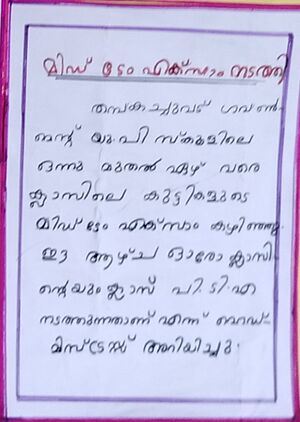 മിഡ് ടേം എക്സാം നടത്തി
തമ്പകച്ചുവട് ഗവൺ-
മെന്റ് യു.പി സ്കൂളിലെ
ഒന്നു മുതൽ ഏഴ് വരെ
ക്ലാസിലെ കുട്ടികളുടെ
മിഡ് ടേം എക്സാം കഴിഞ്ഞു.
ഈ ആഴ്ച ഓരോ ക്ലാസി-
ന്റെയും ക്ലാസ് പി.ടി.എ
നടത്തുന്നതാണ് എന്ന് ഹെഡ്-
മിസ്ട്രസ്സ് അറിയിച്ചു.